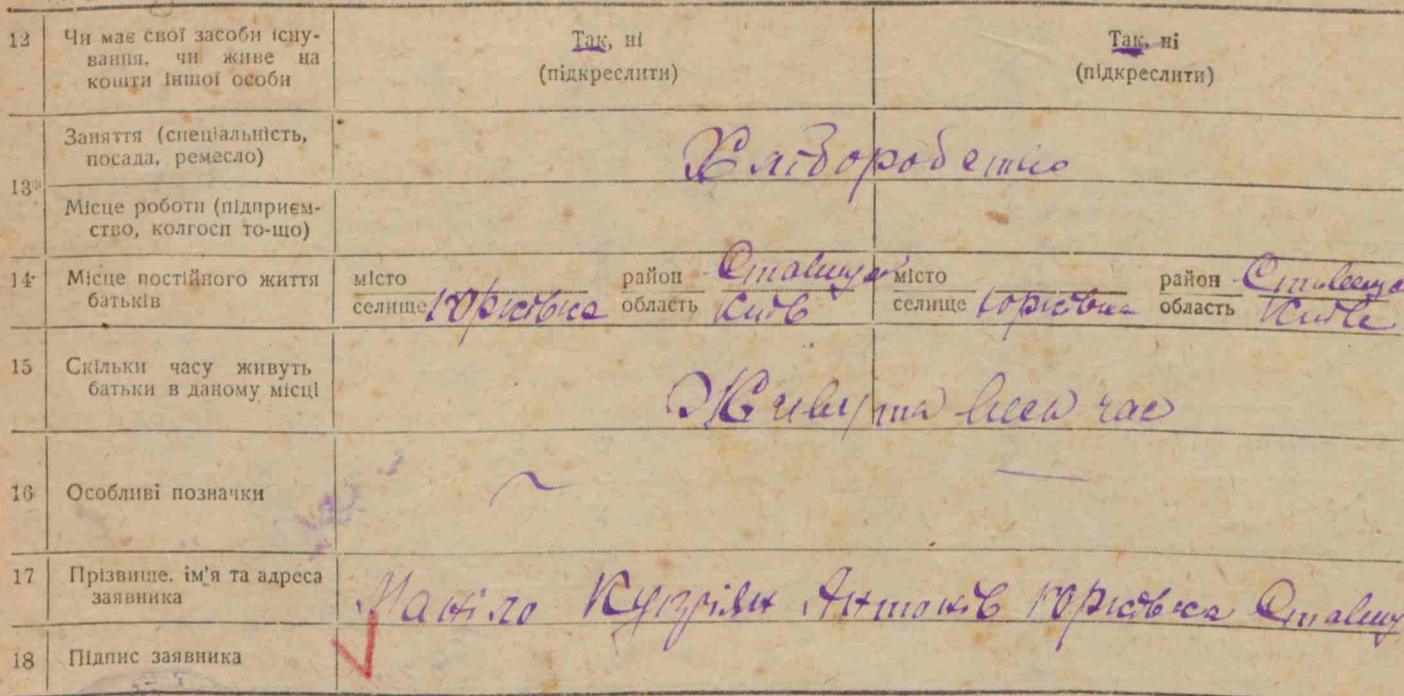 12 Чи має свої засоби існу-
вання, чи живе на
кошти іншої особи
Так, ні
(підкреслити)
Так, ні
(підкреслити)
13 Заняття (спеціальність,
посада, ремесло)
Хліборобство
Місце роботи (підприєм-
ство, колгосп то-що)
14 Місце постійного життя
батьків
місто район Ставище
селище Юрківка область Київ
місто район Ставище
селище Юрківка область Київ
15 Скільки часу живуть
батьки в даному місці
Живута весь час
16 Особливі позначки
17 Прізвище, ім'я та адреса
заявника
Маніло Антонів Юрківка Ставищ
18 Підпис заявника